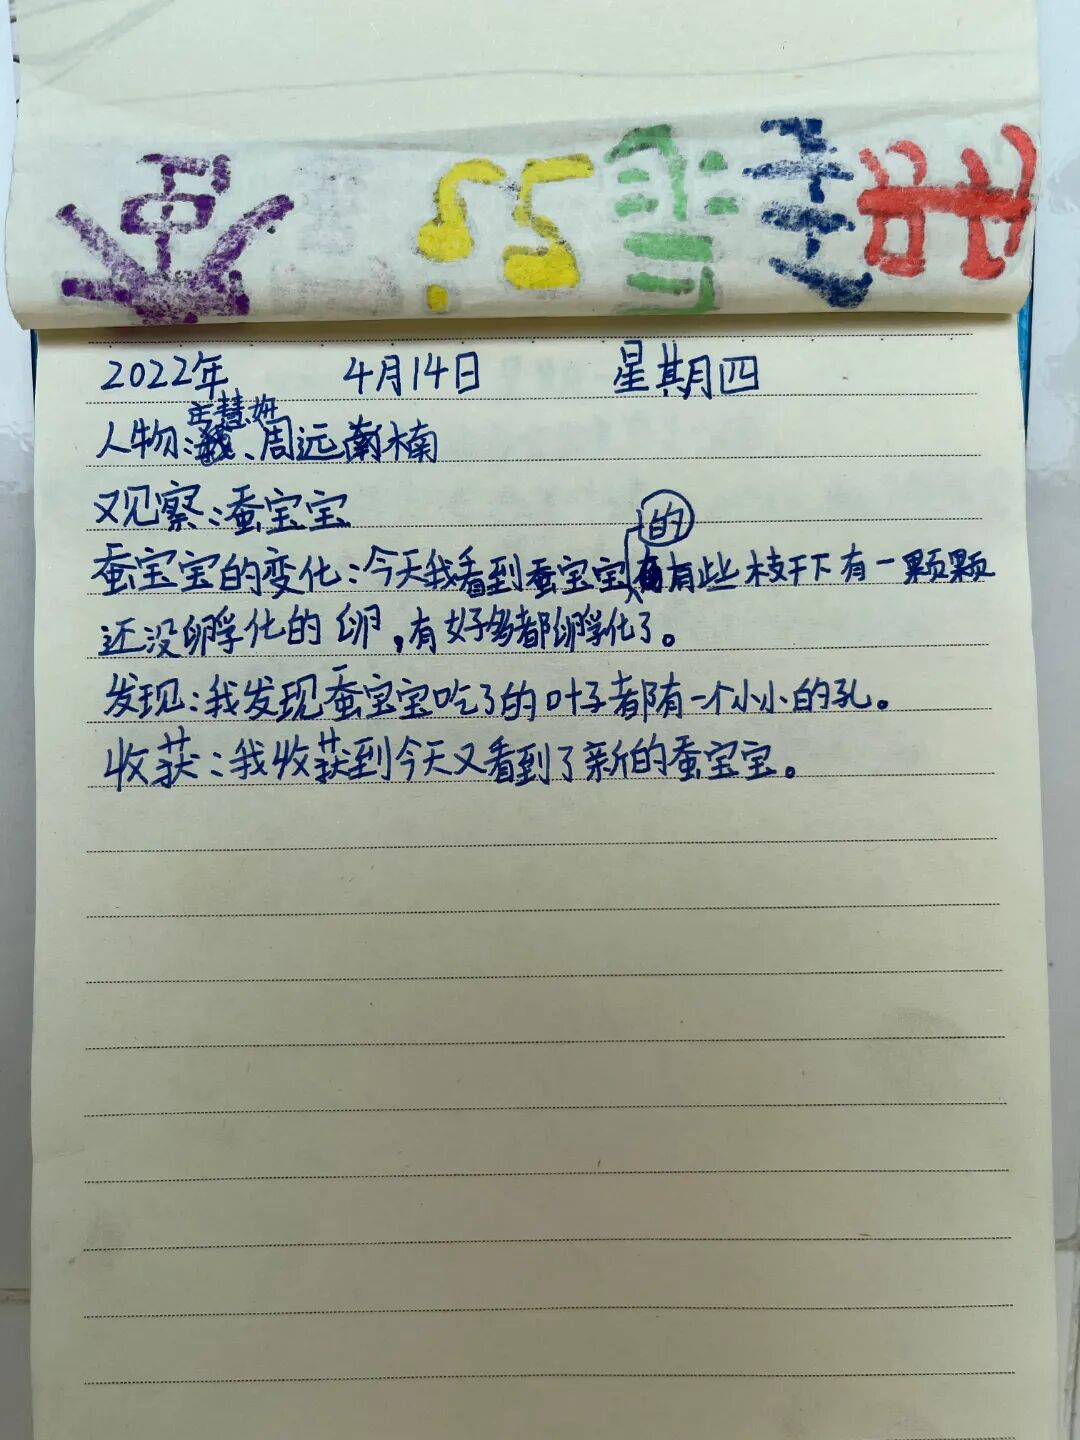 2022年 4月14日 星期四
人物:庄慧妍、周远楠
观察:蚕宝宝
蚕宝宝的变化:今天我看到蚕宝宝的有些枝干下有一颗颗
还没孵化的卵,有好多都孵化了。
发现:我发现蚕宝宝吃了的叶子都有一个小小的孔。
收获:我收获到今天又看到了新的蚕宝宝。